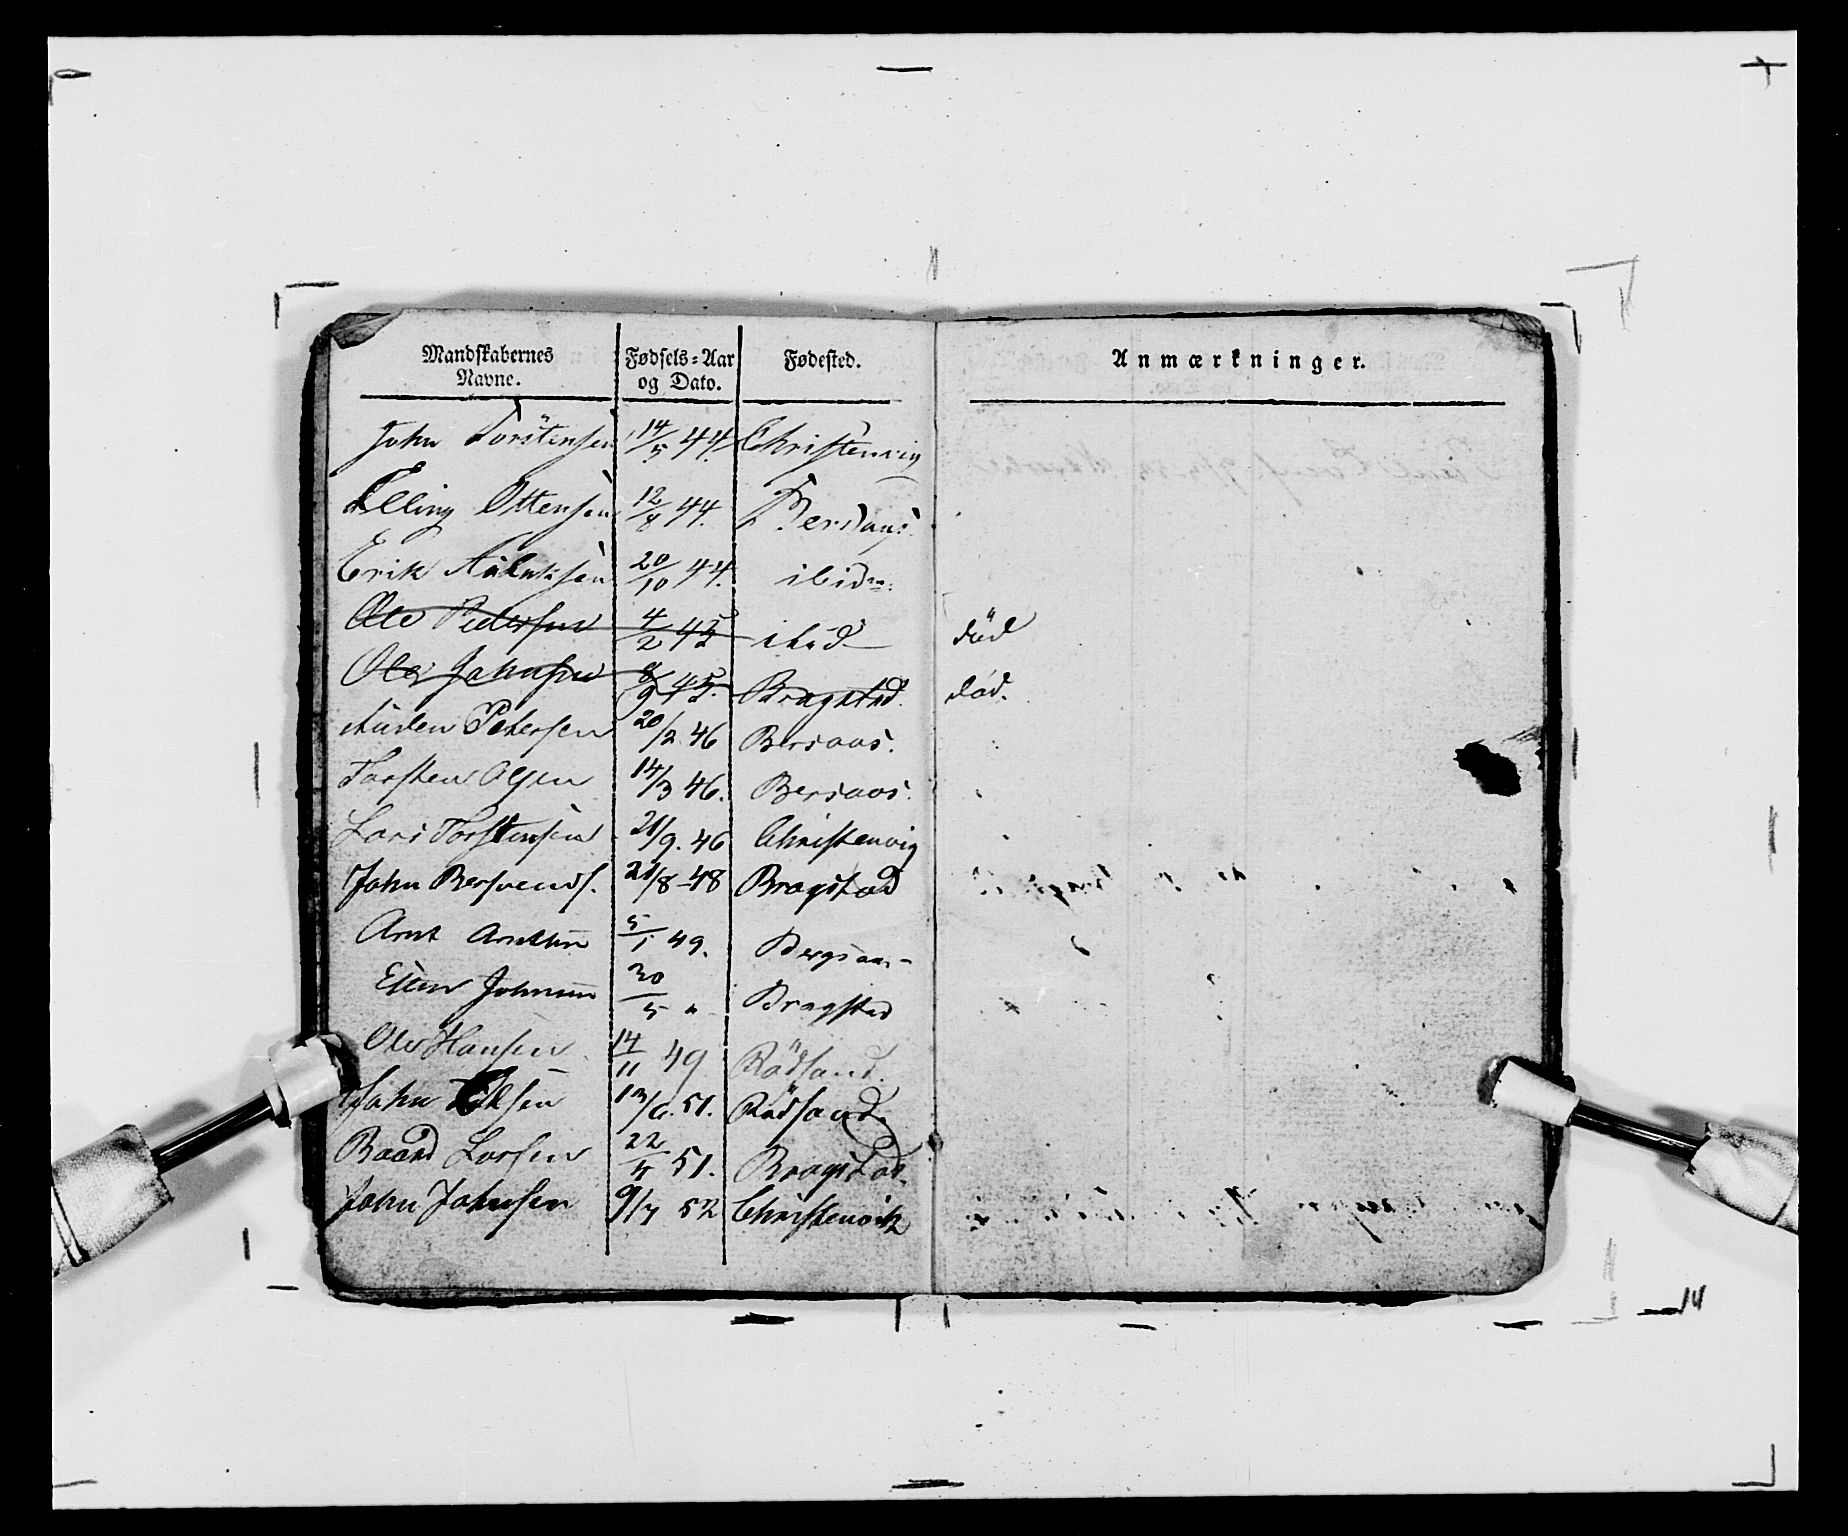 Mandskabernes Navne. Fødsels-Aar og Dato. Fødested. Anmærkninger.
John Torstensen 14/5 44. Christenvig
Elling Ottensen 12/8 44. Bersaas
Erik 20/10 44. ibidm:
Ole Pedersen 4/2 45 ibid død
Ole Johnsen 8/9 45. Bragstad. død.
Auden Pedersen 20/2 46 Bersaas.
Torsten Olsen 14/3 46. Bersaas.
Lars Torstensen 21/9. 46 Christenvig
John Bersvends. 21/8 -48 Bragstad
Arnt Arntsen 5/1 49. Bergsaas
Esten Johnsen 30/5 " Bragstad
Ole Hansen 14/11 49 Rödsand.
John 13/6. 51. Rödsand.
Baard Larsen 22/4 51. Bragstad.
John Johnsen 9/7 52 Christenvik
14